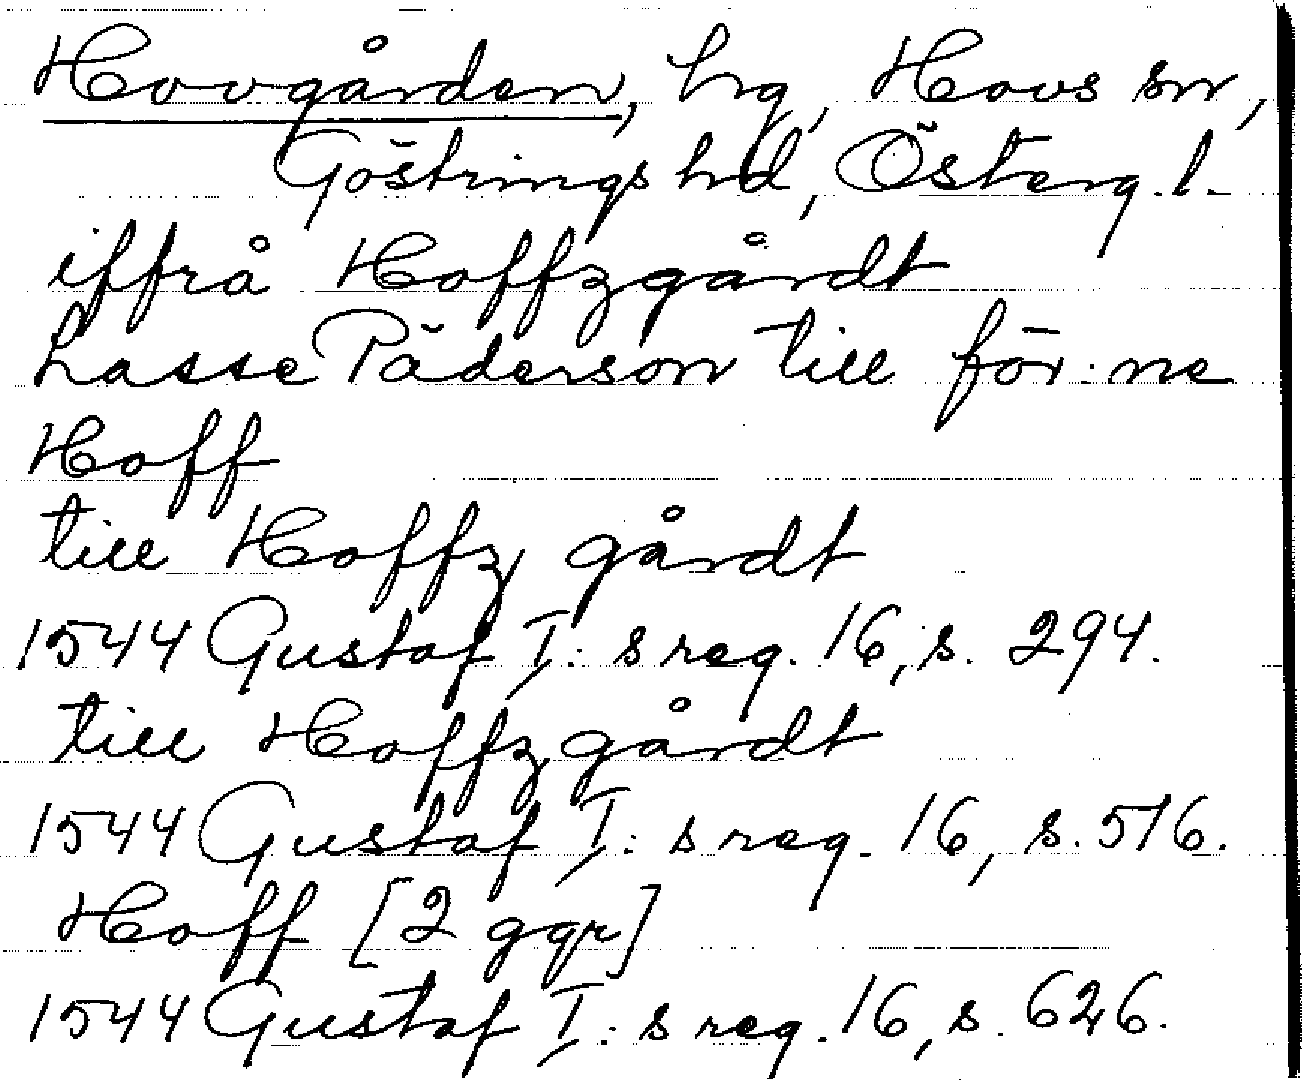 Hovgården, hg, Hovs sn,
Göstrings hd, Österg. l.
iffrå Hoffzgårdt
Lasse Päderson till för:ne
Hoff
till Hoffz gårdt
1544 Gustaf I:s reg. 16, s. 294.
till Hoffzgårdt
1544 Gustaf I:s reg. 16, s. 516.
Hoff [2 ggr]
1544 Gustaf I:s reg. 16, s. 626.